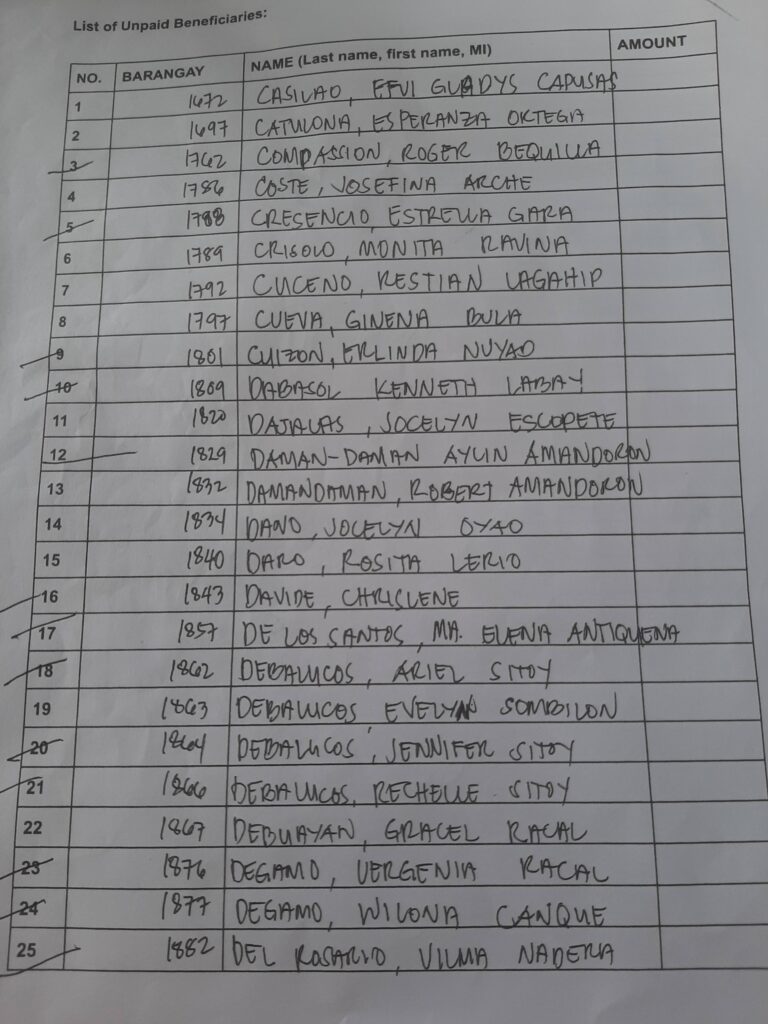 List of Unpaid Beneficiaries:
NO. BARANGAY NAME (Last name, first name, MI) AMOUNT
1 1672 CASILAO, EFVI GLADYS CAPUSAS
2 1697 CATULONA, ESPERANZA ORTEGA
3 1762 COMPASSION, ROGER BEQUILLA
4 1786 COSTE, JOSEFINA ARCHE
5 1788 CRESENCIO, ESTRELLA GARA
6 1789 CRISOLO, MONITA RAVINA
7 1792 CUCENO, RESTIAN LAGAHID
8 1797 CUEVA, GINENA BULA
9 1801 CUIZON, ERLINDA NUYAO
10 1809 DABASOL KENNETH LABAY
11 1820 DAJALAS, JOCELYN ESCOPETE
12 1829 DAMAN-DAMAN AYLIN AMANDORON
13 1832 DAMANDAMAN, ROBERT AMANDORON
14 1834 DANO, JOCELYN OYAO
15 1840 DARO, ROSITA LERIO
16 1843 DAVIDE, CHRISLENE
17 1857 DE LOS SANTOS, MA. ELENA ANTIQUENA
18 1862 DEBALUCOS, ARIEL SITOY
19 1863 DEBALUCOS EVELYN SOMBILON
20 1864 DEBALUCOS, JENNIFER SITOY
21 1866 DEBALUCOS, RECHELLE SITOY
22 1867 DEBUAYAN, GRACEL RACAL
23 1876 DEGAMO, VERGENIA RACAL
24 1877 DEGAMO, WILONA CANQUE
25 1882 DEL ROSARIO, VILMA NADERA